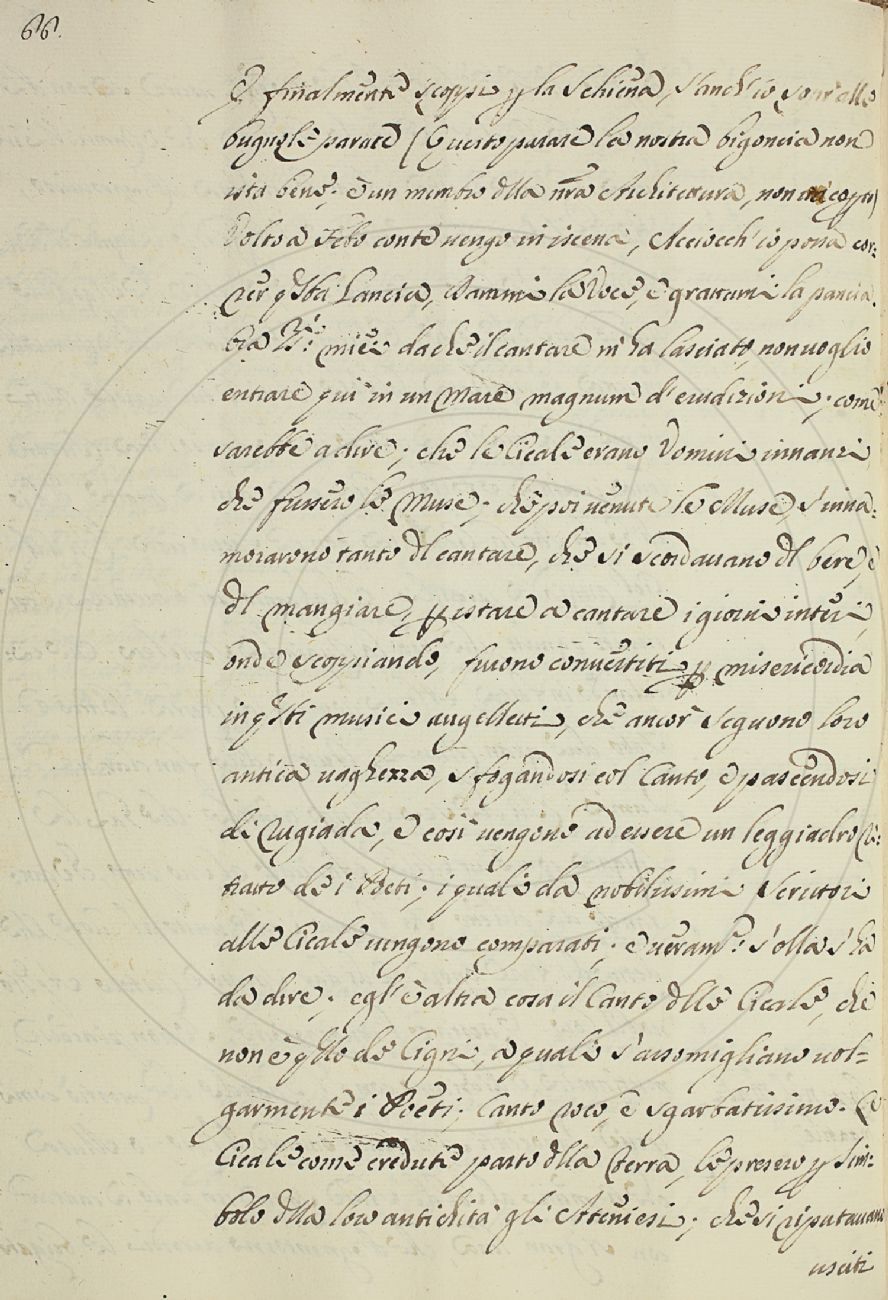 66.
E finalmente scoppi p la schiena, s'anch'io son alle
bugnole parate (Questo parare la nostra bigoncia non
ista bene; è un membro dlla nra Architettura, non
Volto a Febo conte vengo in iscena, Acciocch'io possa cor=
rer qsta Lancia, Dammi la Voce, e grattami la pancia.
mie: da che il cantare m'ha lasciato, non voglio
entrare qui in un Mare magnum d'erudizioni; come
sarebbe a dire; che le Cicale erano Uomini innanzi
che fussero le Muse; che poi venute le Muse, s'inna=
morarono tanto dl cantare, che si scordavano dl bere, e
dl mangiare, p istare a cantare i giorni interi,
onde scoppiando, furono convertiti p misericordia
in qsti musici augelletti, che ancor seguono loro
antica vaghezza, sfogandosi col Canto, e pascendosi
di rugiada, e così vengono ad essere un leggiadro ri=
tratto de i Poeti; i quali da nobilissimi Scrittori
alle Cicale vengono comparati; e veramte: s'olla s'ha
da dire; egl'è altra cosa il Canto dlle Cicale, che
non è qllo de Cigni, a quali s'assomigliano vol=
garmente i Poeti; Canto roco, e sgarbatissimo. Le
Cicale come credute parto dlla Terra, le presero p sim=
bolo dlla loro antichità gli Ateniesi; che si riputavano
usciti